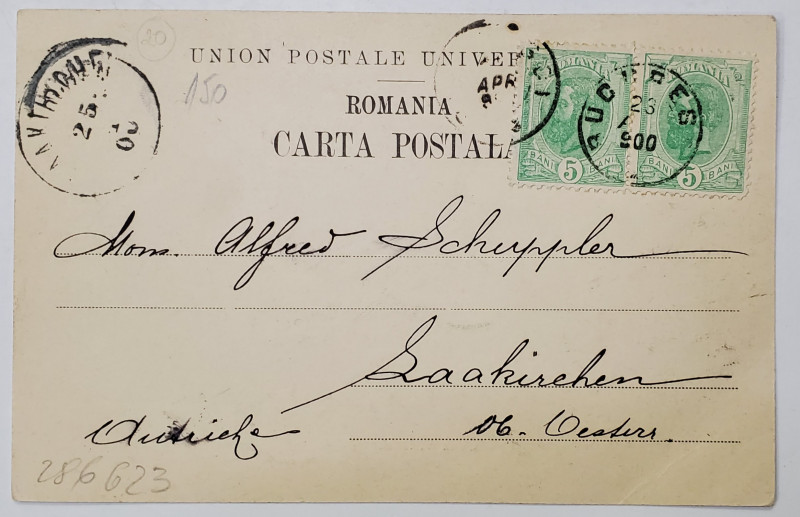 20
UNION POSTALE UNIVER
150
ROMANIA
CARTA POSTALA
25
00
APR
ROMANIA
BANI 5 BANI
BUCURES
23
900
ROMANIA
BANI 5 BANI
Mons. Alfred Schuppler
Laakirchen
Autriche Ob. Oesterr.
286623